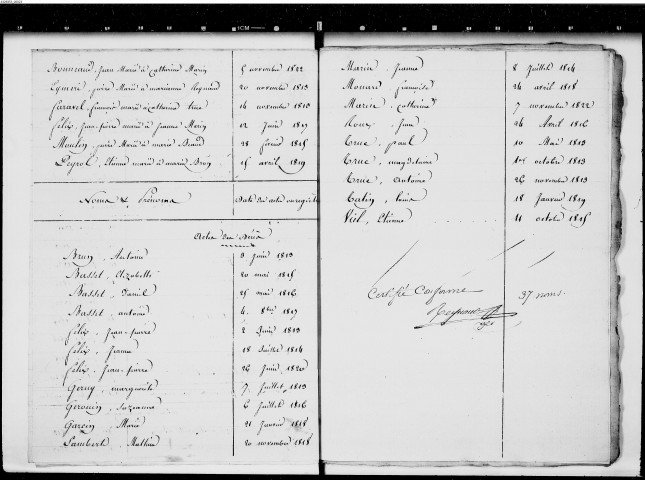 Jean Marié à Catherine Marin 5 novembre 1822
Eymeri, pierre Marié à marianne Reynaud 20 novembre 1813
françois marié à Catherine 16 novembre 1813
Felix, Jean pierre marié à Jeanne Marin 12 Juin 1817
Moulon, pierre Marié à marie 28 février 1815
Peyrol, Etienne marié à marie Brun 15 avril 1819
Noms & Prénoms Date des actes ou registres
Actes de Décès
Brun, Antoine 9 Juin 1813
Basset, Elizabeth 20 mai 1815
Basset, Daniel 25 mai 1816
Basset, antoine 4 8bre 1817
Felix, Jean-pierre 2 Juin 1813
Felix, Jeanne 18 Juillet 1814
Felix, Jean-pierre 26 Juin 1820
marguerite 7 Juillet 1813
Suzanne 6 Juillet 1816
Garcin, Marie 21 Janvier 1818
Lambert, Mathieu 20 novembre 1818
Marin, Jeanne 8 Juillet 1814
Monard, françoise 24 avril 1818
Marin, Catherine 7 novembre 1822
Roux, Jean 26 Avril 1816
Truc, paul 10 Mai 1813
Truc, magdelaine 1er octobre 1813
Truc, antoine 26 novembre 1813
Tatin, louis 18 Janvier 1819
Viel, Etienne 11 octobre 1815
Certifié Conforme 37 noms.